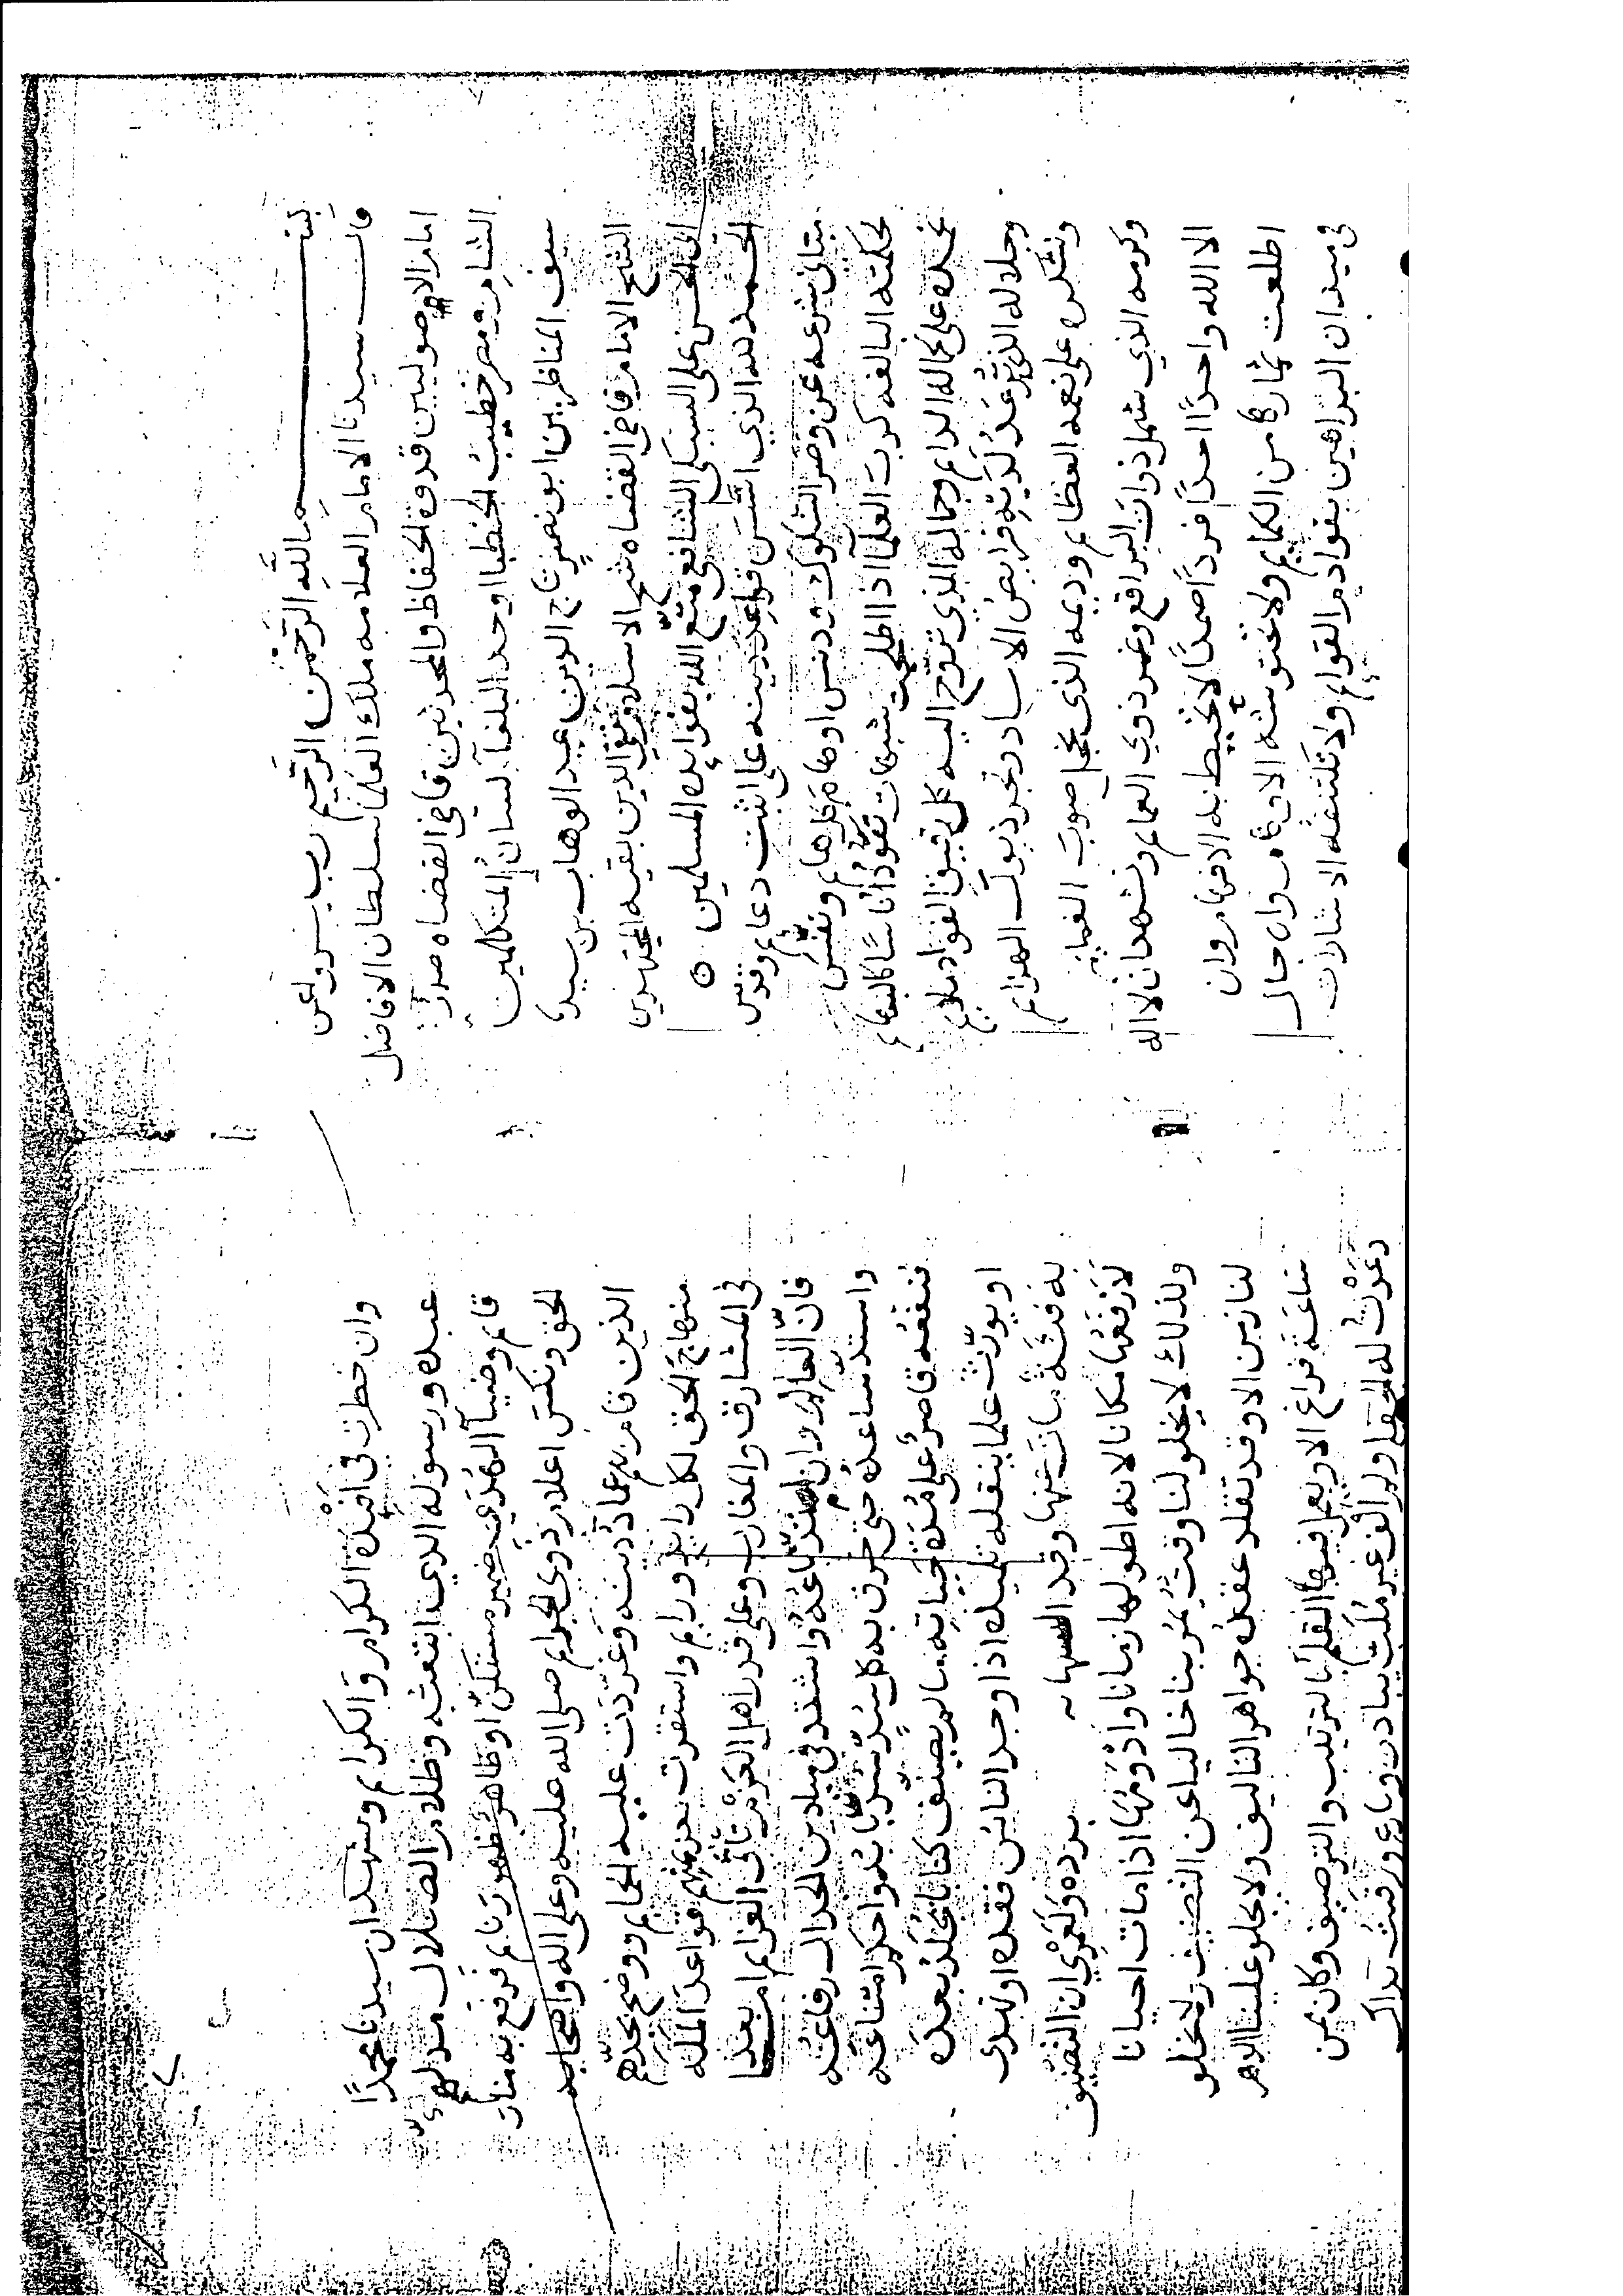 بسم الله الرحمن الرحيم رب يسر واعن
قال سيدنا الامام العلامه ملك العلما سلطان الافاضل
امام الاصوليين قدوة الحفاظ والمحدثين قاضي القضاه صدر
الشام ومصر خطيب الخطبا اوحد البلغا لسان المتكلمين
سيف المناظرين ابو نصر تاج الدين عبد الوهاب بن سيدنا
الشيخ الامام قاضي القضاه شيخ الاسلام تقي الدين بقيه المجتهدين
ابي الحسن علي السبكي الشافعي متع الله بفوايده المسلمين ه
الحمد لله الذي اسس قواعد دينه على اثبت دعايم وقدس
مباني شرعه عن وضر الشكوك ودنس اوهام
لحكمته البالغه كرب العلما اذا اظلمت شبهات تقود اناسا كالبهايم
نحمده على كماله الدايم وجماله الذي تروح اليه كل رقيق الفواد ملايم
وجلاله الذي ترعد لديه فرايص الاساد وتجر ذيول الهزايم
ونشكره على نعمه العظايم وديمه الذي يخجل صوب الغمايم
وكرمه الذي شمل ذوات البراقع وغمر ذوي العمايم ونشهد ان لا اله
الا الله واحدا احدا فردا صمدا لا تحيط به الافهام وان
اطلعت ثمارها من الكمايم ولا تحتوشه الاوهام وان جال
في ميدان البراهين بقوادم القوايم ولا تكتنفه الاشارات
وان خطرت في افيدة الكرام والكرايم ونشهد ان سيدنا محمدا
عبده ورسوله الذي ابتعثه وظلام الضلال مدلهم
قايم وضياء الهدى ضمير مستكن او ظاهر ظهور نايم فرفع به منار
الحق ونكس اعلام ذوي الجرايم صلى الله عليه وعلى اله واصحابه
الذين قام بهم عماد دينه وغردت عليه الحمايم ووضح بجدهم
منهاج الحق لكل رايد ورايم واستقرت بعزمهم قواعد المله
في المشارق والمغارب وعلى قدر اهل العزم تاتي العزايم اما بعد
فان العالم وان امتد باعه واشتد في ميادين الجدال دفاعه
واستد ساعده حتى خرق به كل سد سد بابه واحكم امتناعه
فنفعه قاصر على مدة حياته ما لم يصنف كتابا يخلد بعده
او يورث علما ينقله تلميذه اذا وجد الناس فقده او تهتدى
به فئة مات عنها وقد البسها به برده ولعمري ان التصنيف
لارفعها مكانا لانه اطولها زمانا وادومها اذا مات احيانا
ولذلك لا يخلو لنا وقت يمر بنا خاليا عن التصنيف ولا يخلو
لنا زمن الا وقد تقلد عقده جواهر التاليف ولا يجلو علينا الدهر
ساعة فراغ الا ويعمل فيها القلم بالترتيب والترصيف وكان ممن